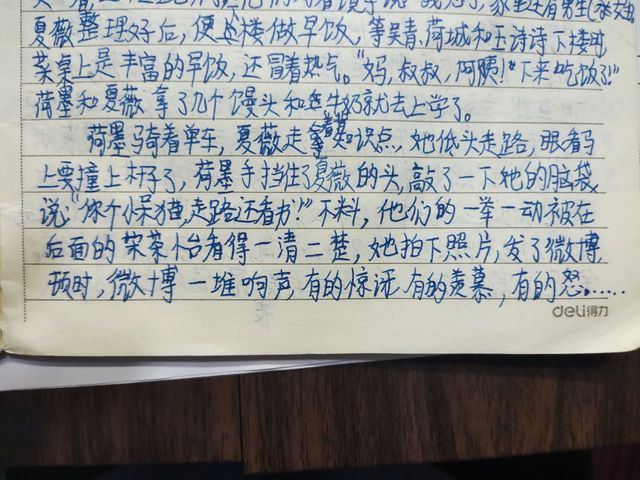 夏薇整理好后,便上楼做早饭,等吴青、荷城和王诗诗下楼时
菜桌上是丰富的早饭,还冒着热气。"妈,叔叔,阿姨!下来吃饭了!"
荷墨和夏薇拿了几个馒头和牛奶就去上学了。
荷墨骑着单车,夏薇走拿着知识点,她低头走路,眼看马
上要撞上杆子了,荷墨手挡住了夏薇的头,敲了一下她的脑袋
说:"你个小呆猫,走路还看书!"不料,他们的一举一动被在
后面的荣茶台看得一清二楚,她拍下照片,发了微博
顿时,微博一堆响声,有的惊讶,有的羡慕,有的怒......
deli得力